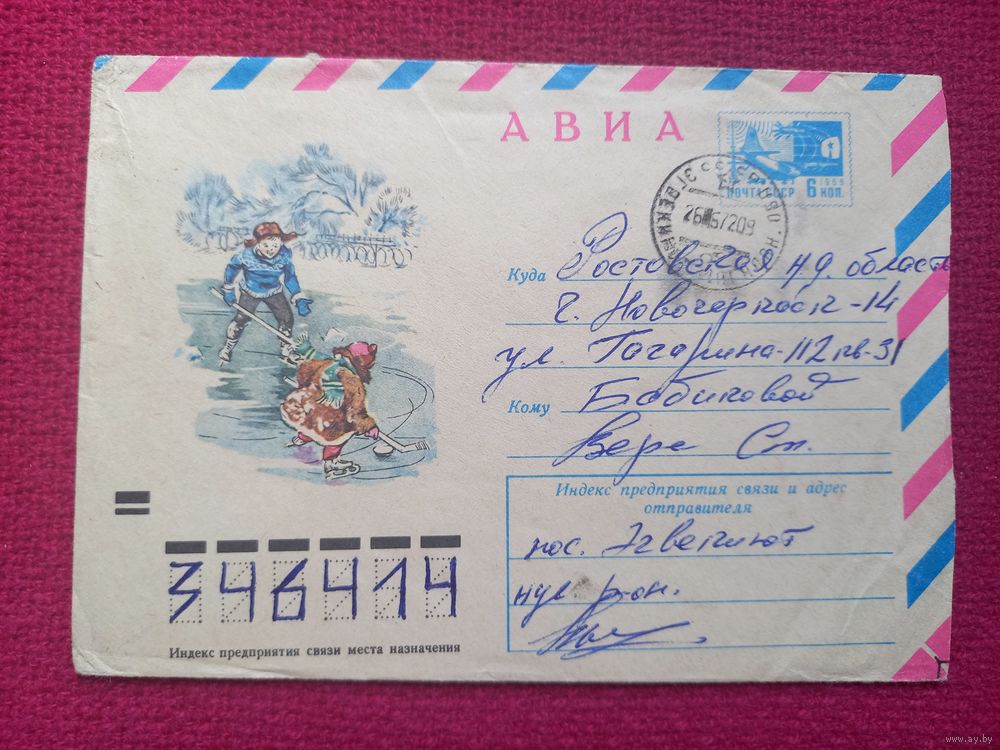 АВИА
ПОЧТА СССР 1966
6 КОП.
Куда Ростовская обл. область
г. Новочеркасск-14
ул. Гагарина-112 кв-31
Кому Бабиковой
Вере Ст.
Индекс предприятия связи и адрес
отправителя
пос. Эгвекинот
346414
Индекс предприятия связи места назначения
www.ay.by